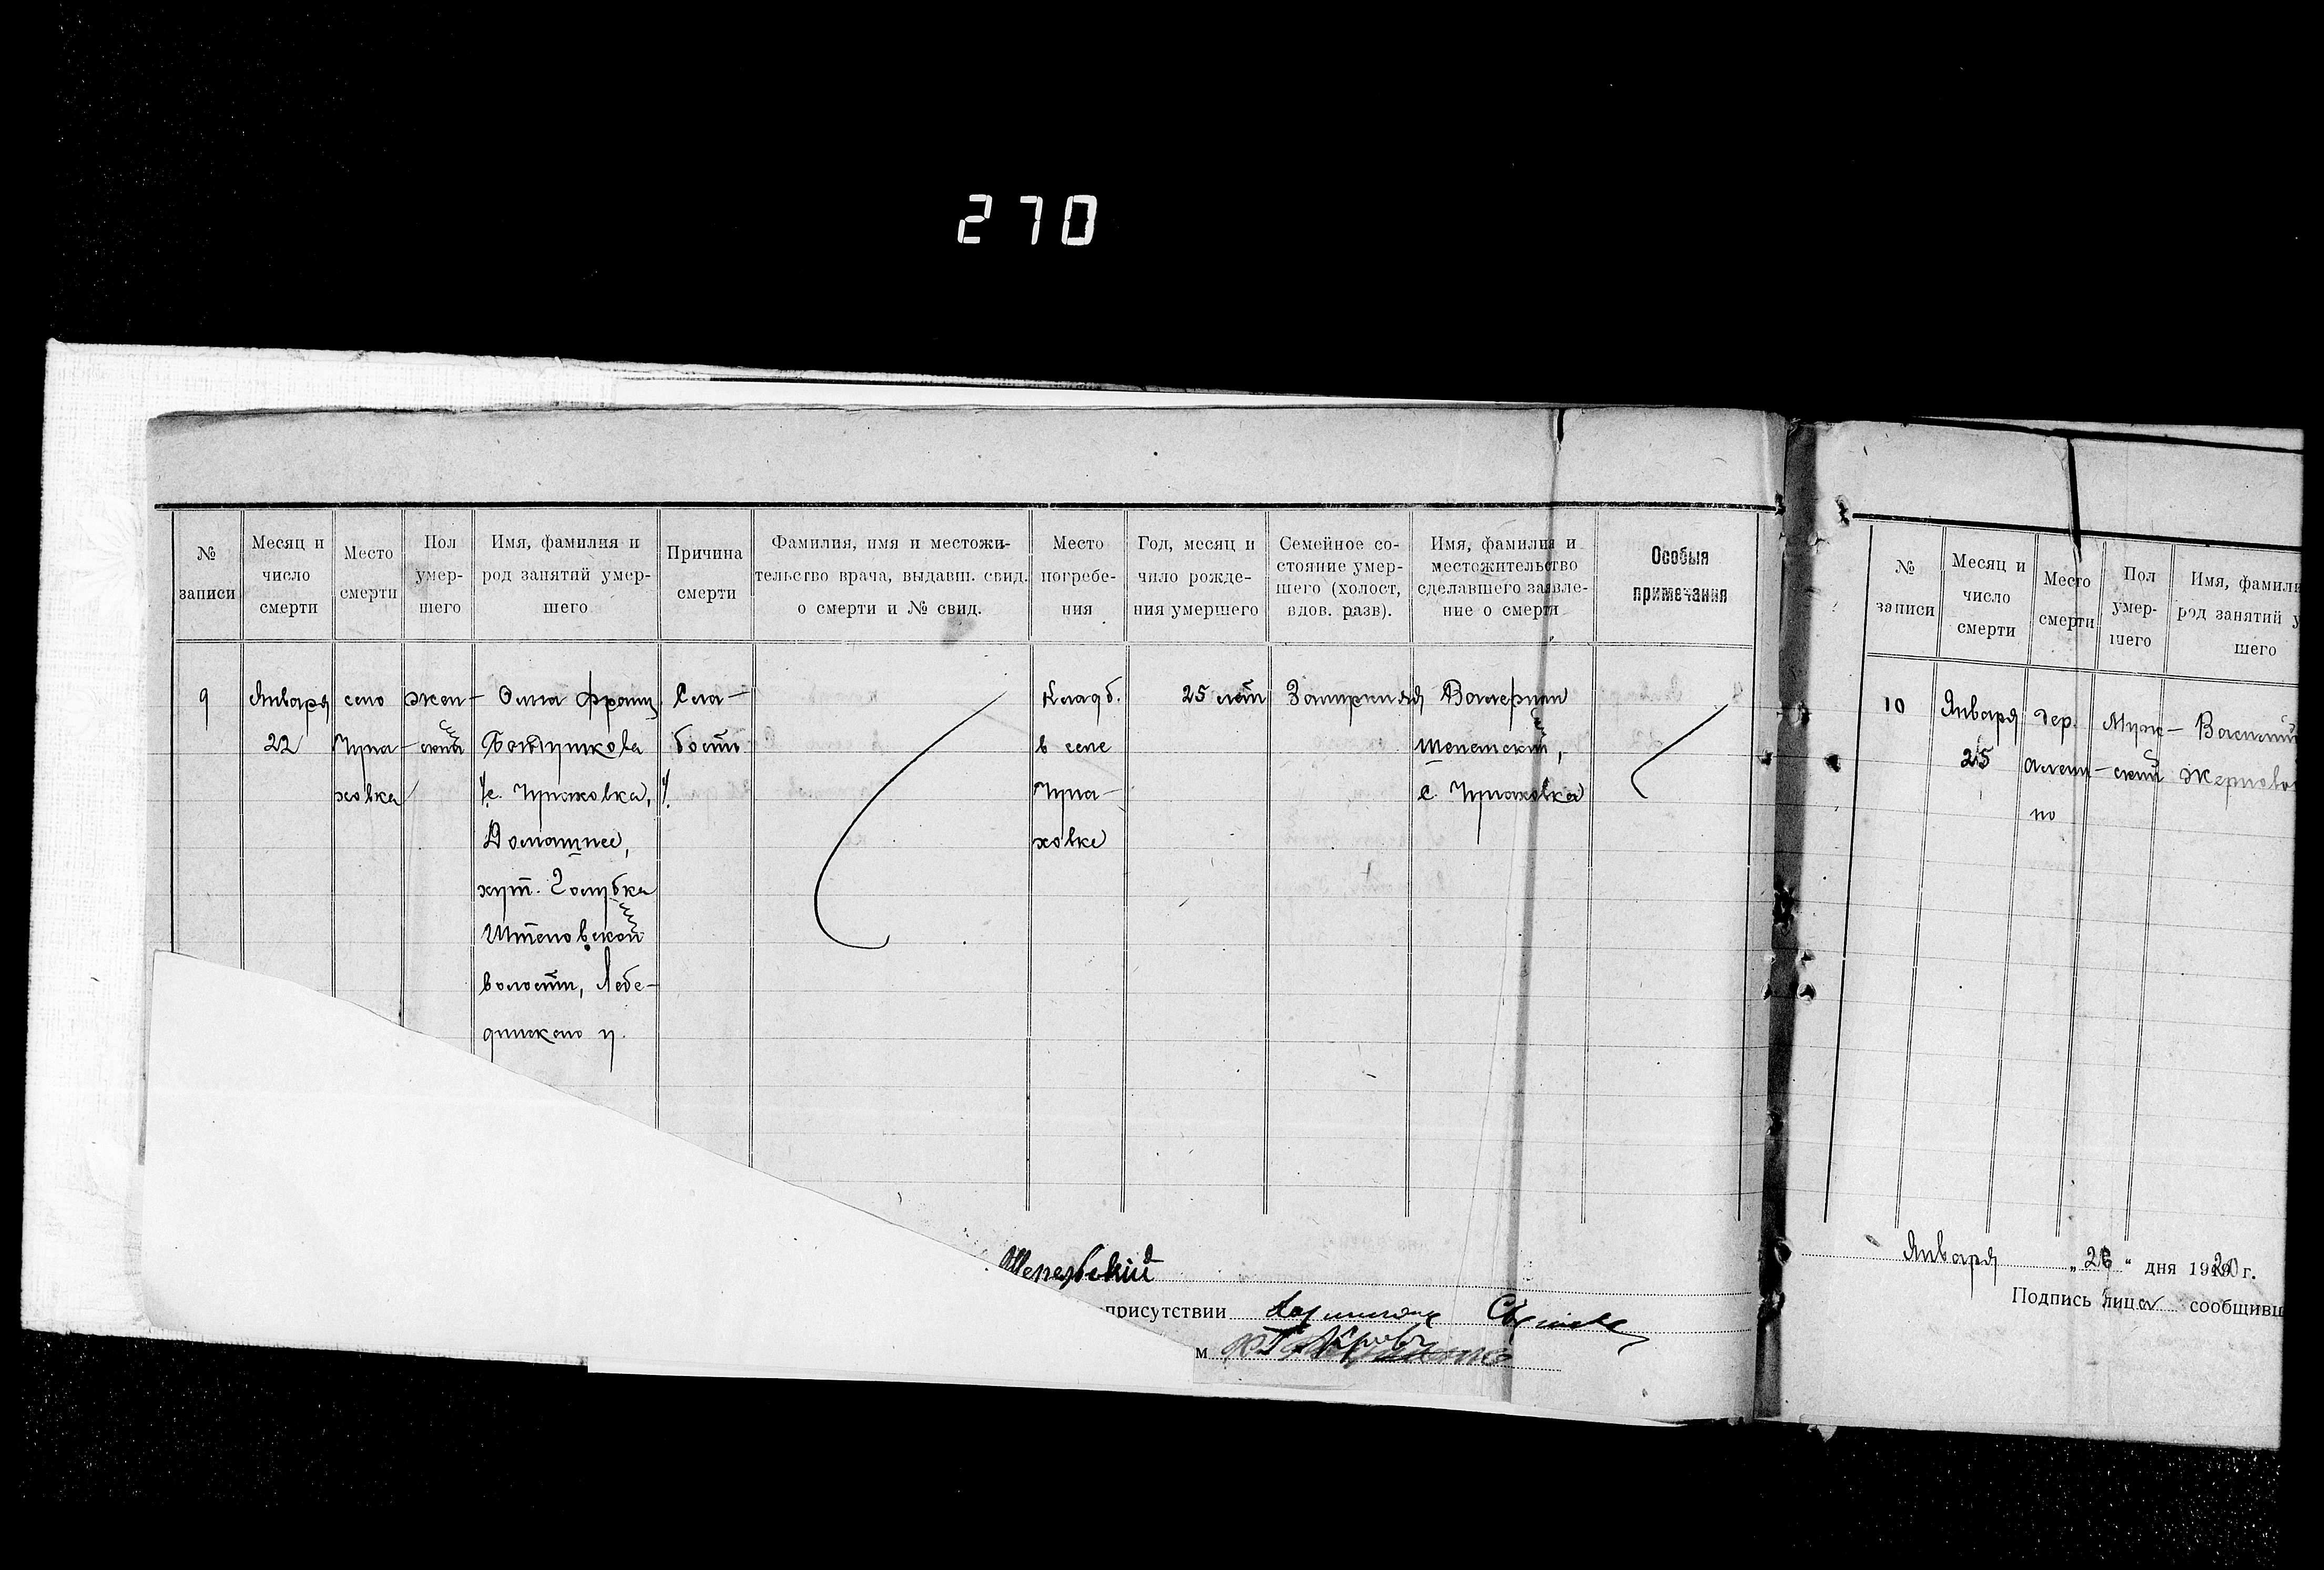 270
№ записи
Месяц и число смерти
Место смерти
Пол умер- шего
Имя, фамилия и род занятий умер- шего
Причина смерти
Фамилия, имя и местожи- тельство врача, выдавш. свид. о смерти и № свид.
Место погребе- ния
Год, месяц и число рожде- ния умершего
Семейное со- стояние умер- шего (холост, вдов. разв).
Имя, фамилия и местожительство сделавшего заявле- ние о смерти
Особыя примечания
9
Января
22
село
Чупа-
ховка
жен-
ский
Олна Франц.
с. Чупаховка,
Домашнее,
хут. Голубка
волости, Лебе-
динского у.
Сла-
бость
Кладб.
в селе
Чупа-
ховке
25 лет
Замужняя
Валериан
с. Чупаховка
присутствии
м
№ записи
Месяц и число смерти
Место смерти
Пол умер- шего
Имя, фамили
род занятий у
шего
10
Января
25
дер.
Алеши-
но
Муж-
ский
Василий
Января „26“ дня 1920 г.
Подпись лица сообщивш